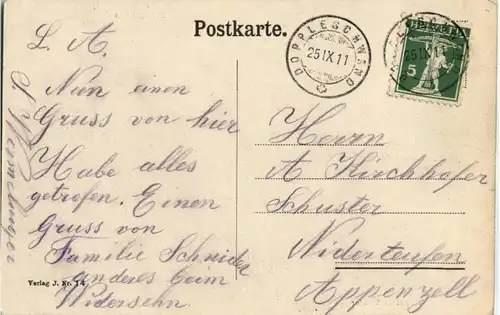 Postkarte.
DOPPLESCHWAND
25 IX 11
25 IX 11
5
L. A.
Nun einen
Gruss von hier
Habe alles
getrofen. Einen
Gruss von
Familie Schnider
anderes beim
Widersehn
Herrn
A Kirchhofer
Schuster
Niderteufen
Appenzell
Verlag J. Nr. 14